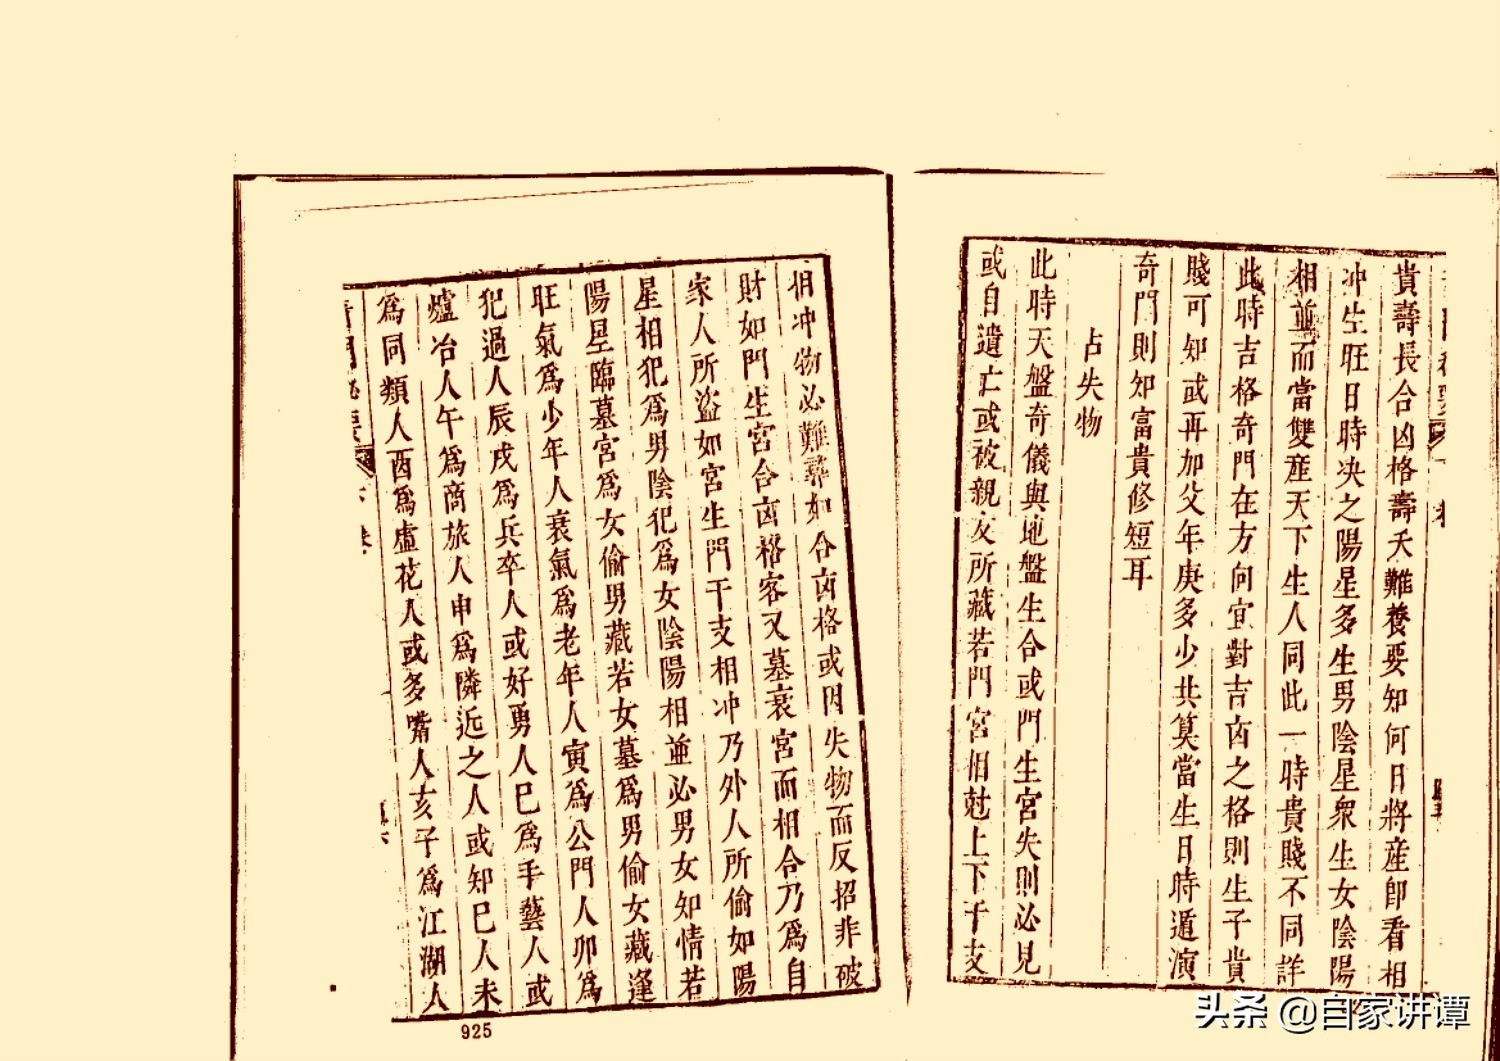 貴壽長合凶格壽夭難養要知何日將産卽看相
冲生旺日時决之陽星多生男陰星衆生女陰陽
相並而當雙産天下生人同此一時貴賤不同詳
此時吉格奇門在方向宜對吉凶之格則生子貴
賤可知或再加父年庚多少共算當生日時遁演
奇門則知富貴修短耳
占失物
此時天盤奇儀與地盤生合或門生宮失則必見
或自遺亡或被親友所藏若門宮相尅上下干支
相冲物必難尋如合凶格或因失物而反招非破
財如門生宮合凶格客又墓衰宮而相合乃為自
家人所盜如宮生門干支相冲乃外人所偷如陽
星相犯爲男陰犯爲女陰陽相並必男女知情若
陽星臨墓宮爲女偷男藏若女墓爲男偷女藏逢
旺氣爲少年人衰氣爲老年人寅爲公門人卯爲
犯過人辰戌爲兵卒人或好勇人巳爲手藝人或
爐冶人午爲商旅人申爲隣近之人或知巳人未
爲同類人酉爲虛花人或多嘴人亥子爲江湖人
925
头条 @自家讲谭